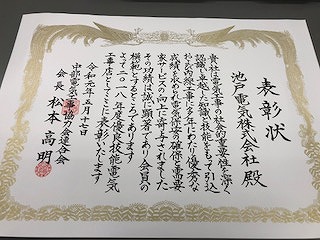 表彰状
池戸電気株式会社 殿
貴社は電気工事の社会的重要性を深く
認識し卓越した知識と技能をもって引込
および内線工事に多年にわたり優秀な
成績を収め電気保安の確保と需要
家サービスの向上に寄与されました
その功績は誠に顕著であり会員の
模範とするところであります
よって二〇一八年度優良技能電気
工事店としてここに表彰いたします
令和元年五月十七日
中部電気工事協力会連合会
会長 松本高明